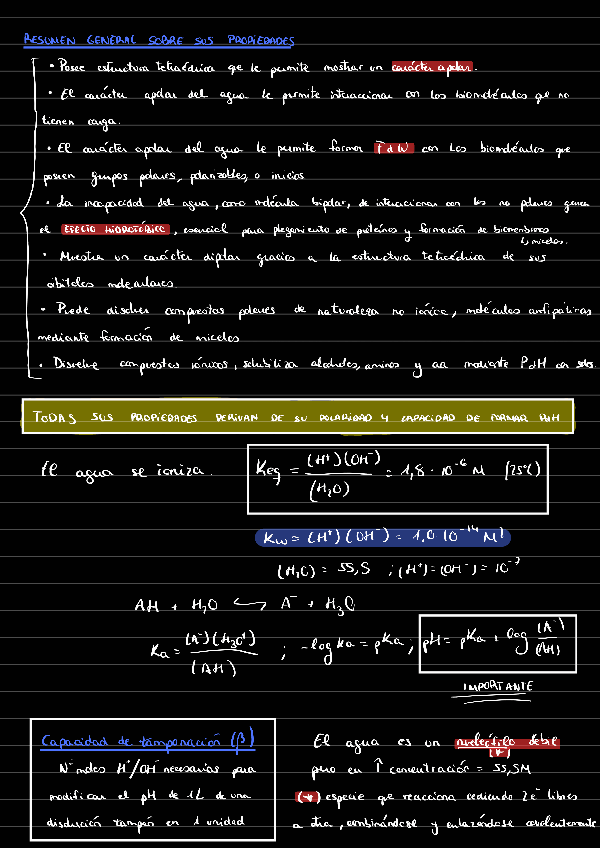 RESUMEN GENERAL SOBRE SUS PROPIEDADES
• Posee estructura tetraédrica que le permite mostrar un carácter apolar.
• El carácter apolar del agua le permite interaccionar con los biomoléculas que no
tienen carga.
• El carácter apolar del agua le permite formar PdH con los biomoléculas que
poseen grupos polares, polarizables, o iónicos
• La incapacidad del agua, como molécula bipolar, de interaccionar con los no polares genera
el EFECTO HIDROFÓBICO, esencial para plegamiento de proteínas y formación de biomembranas
↳ micelas.
• Muestra un carácter dipolar gracias a la estructura tetraédrica de sus
orbitales moleculares.
• Puede disolver compuestos polares de naturaleza no iónica, moléculas anfipáticas
mediante formación de micelas
• Disuelve compuestos iónicos, solubiliza alcoholes, aminos y aa mediante PdH con sales.
TODAS SUS PROPIEDADES DERIVAN DE SU POLARIDAD Y CAPACIDAD DE FORMAR PdH
El agua se ioniza. Keq = (H⁺)(OH⁻) / (H₂O) = 1,8 · 10⁻⁶ M (25ºC)
Kw = (H⁺)(OH⁻) = 1,0 · 10⁻¹⁴ M²
(H₂O) = 55,5 ; (H⁺) = (OH⁻) = 10⁻⁷
AH + H₂O ⟷ A⁻ + H₃O
Ka = (A⁻)(H₃O⁺) / (AH) ; -log ka = pKa ; pH = pKa + log (A⁻) / (AH)
IMPORTANTE
Capacidad de tamponación (β)
Nº moles H⁺/OH⁻ necesarias para
modificar el pH de 1L de una
disolución tampón en 1 unidad
El agua es un nucleófilo débil
(*)
pero en ↑ concentración = 55,5M
(*) especie que reacciona cediendo 2e⁻ libres
a otra, combinándose y enlazándose covalentemente